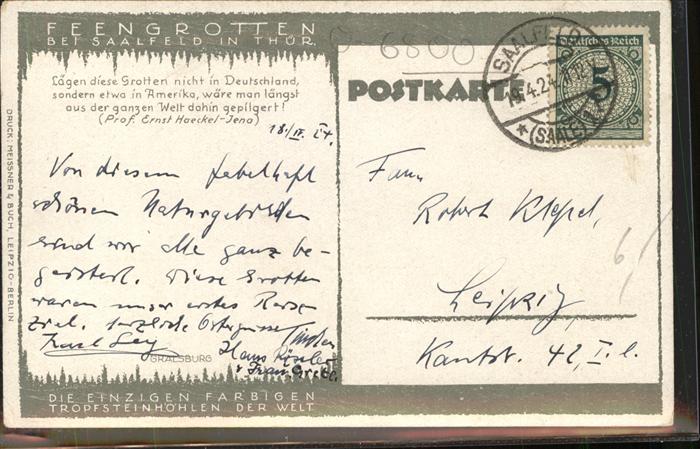 FEENGROTTEN
BEI SAALFELD IN THÜR.
Lägen diese Grotten nicht in Deutschland,
sondern etwa in Amerika, wäre man längst
aus der ganzen Welt dahin gepilgert!
(Prof. Ernst Haeckel-Jena)
18./IV. 24.
Von diesem fabelhaft
schönen Naturgebilden
sind wir alle ganz be-
geistert. Diese Grotten
waren unser erstes Reise-
ziel. herzliche Ostergrüsse
GRALSBURG
Hans
DIE EINZIGEN FARBIGEN
TROPFSTEINHÖHLEN DER WELT
DRUCK: MEISSNER & BUCH, LEIPZIG-BERLIN
0-6800
POSTKARTE
SAALFELD
19.4.24
(SAALE)
Deutsches Reich
5
Robert
Leipzig
Kantst. 42, I. l.